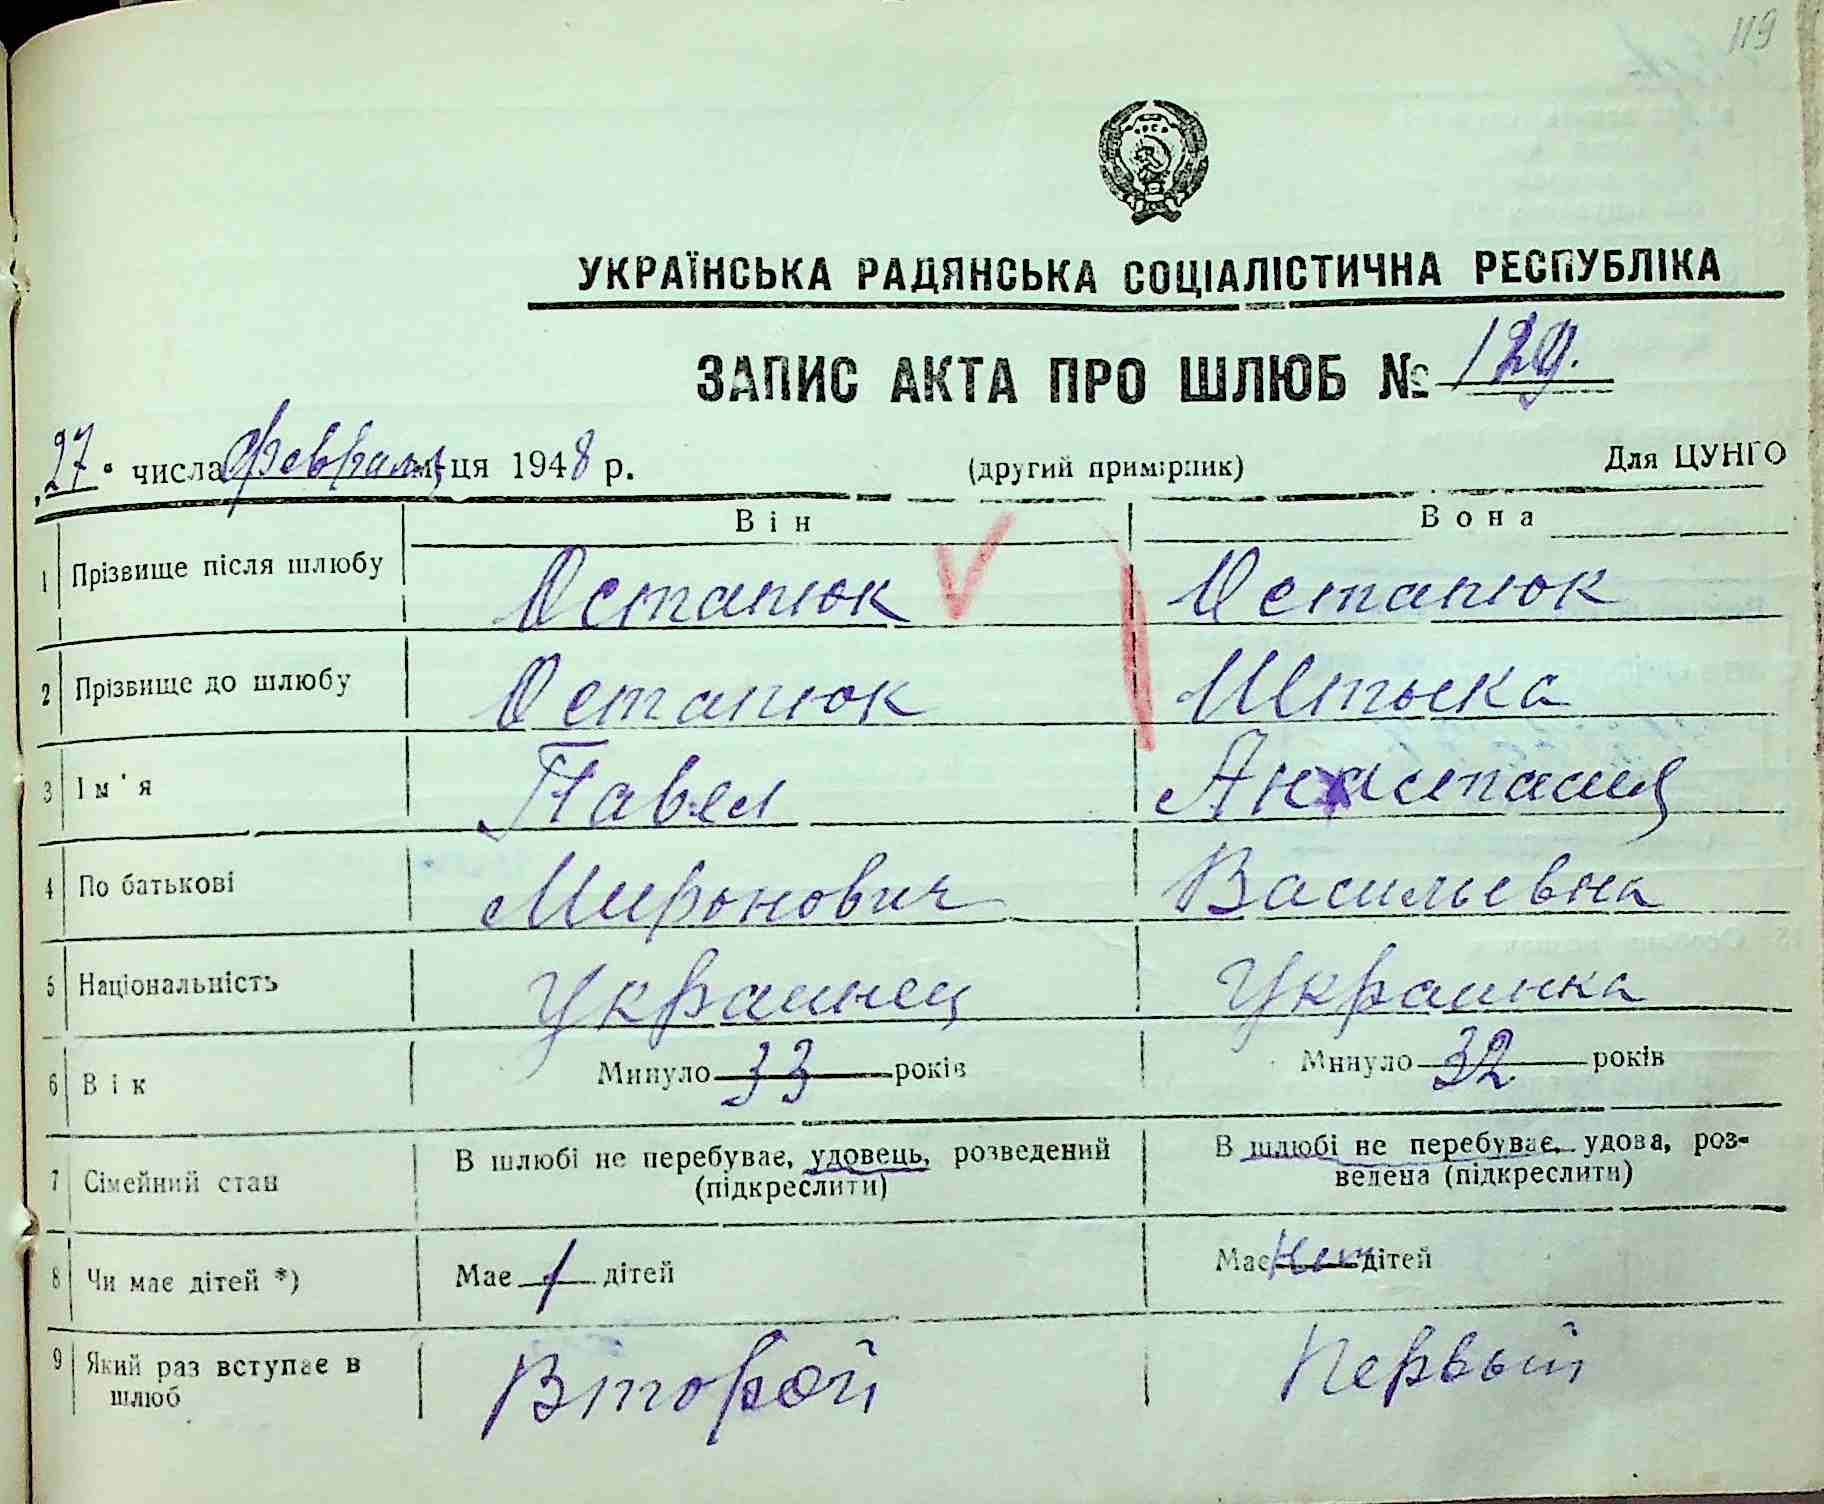 119
УКРАЇНСЬКА РАДЯНСЬКА СОЦІАЛІСТИЧНА РЕСПУБЛІКА
ЗАПИС АКТА ПРО ШЛЮБ № 129.
27 числа февраля м-ця 1948 р. (другий примірник) Для ЦУНГО
Він Вона
1 Прізвище після шлюбу Остапюк Остапюк
2 Прізвище до шлюбу Остапюк
3 Ім'я Павел Анастасия
4 По батькові Миронович Васильевна
5 Національність Украинец Украинка
6 Вік Минуло 33 років Минуло 32 років
7 Сімейний стан В шлюбі не перебуває, удовець, розведений (підкреслити) В шлюбі не перебуває, удова, роз-
ведена (підкреслити)
8 Чи має дітей *) Має 1 дітей Має нет дітей
9 Який раз вступає в шлюб Второй Первый